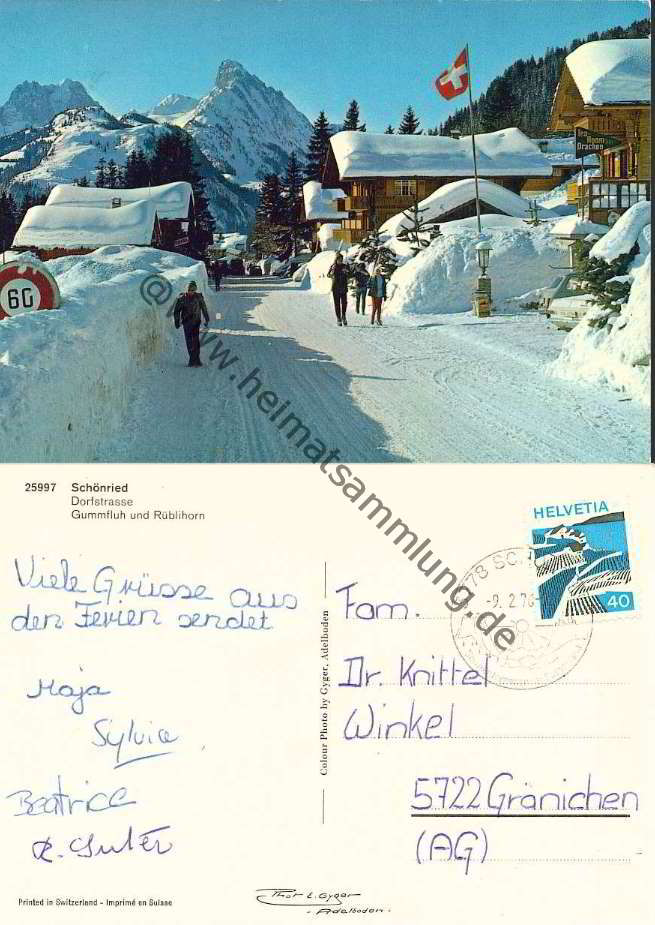 Tea Room
Drachen
60
@ www.heimatsammlung.de
25997 Schönried
Dorfstrasse
Gummfluh und Rüblihorn
HELVETIA
40
- 9. 2. 76
Viele Grüsse aus
den Ferien sendet
Maja
Sylvia
Beatrice
R. Suter
Colour Photo by Gyger, Adelboden
Fam.
Dr. Knittel
Winkel
5722 Gränichen
(AG)
Printed in Switzerland - Imprimé en Suisse
Thor L. Gyger
- Adelboden -